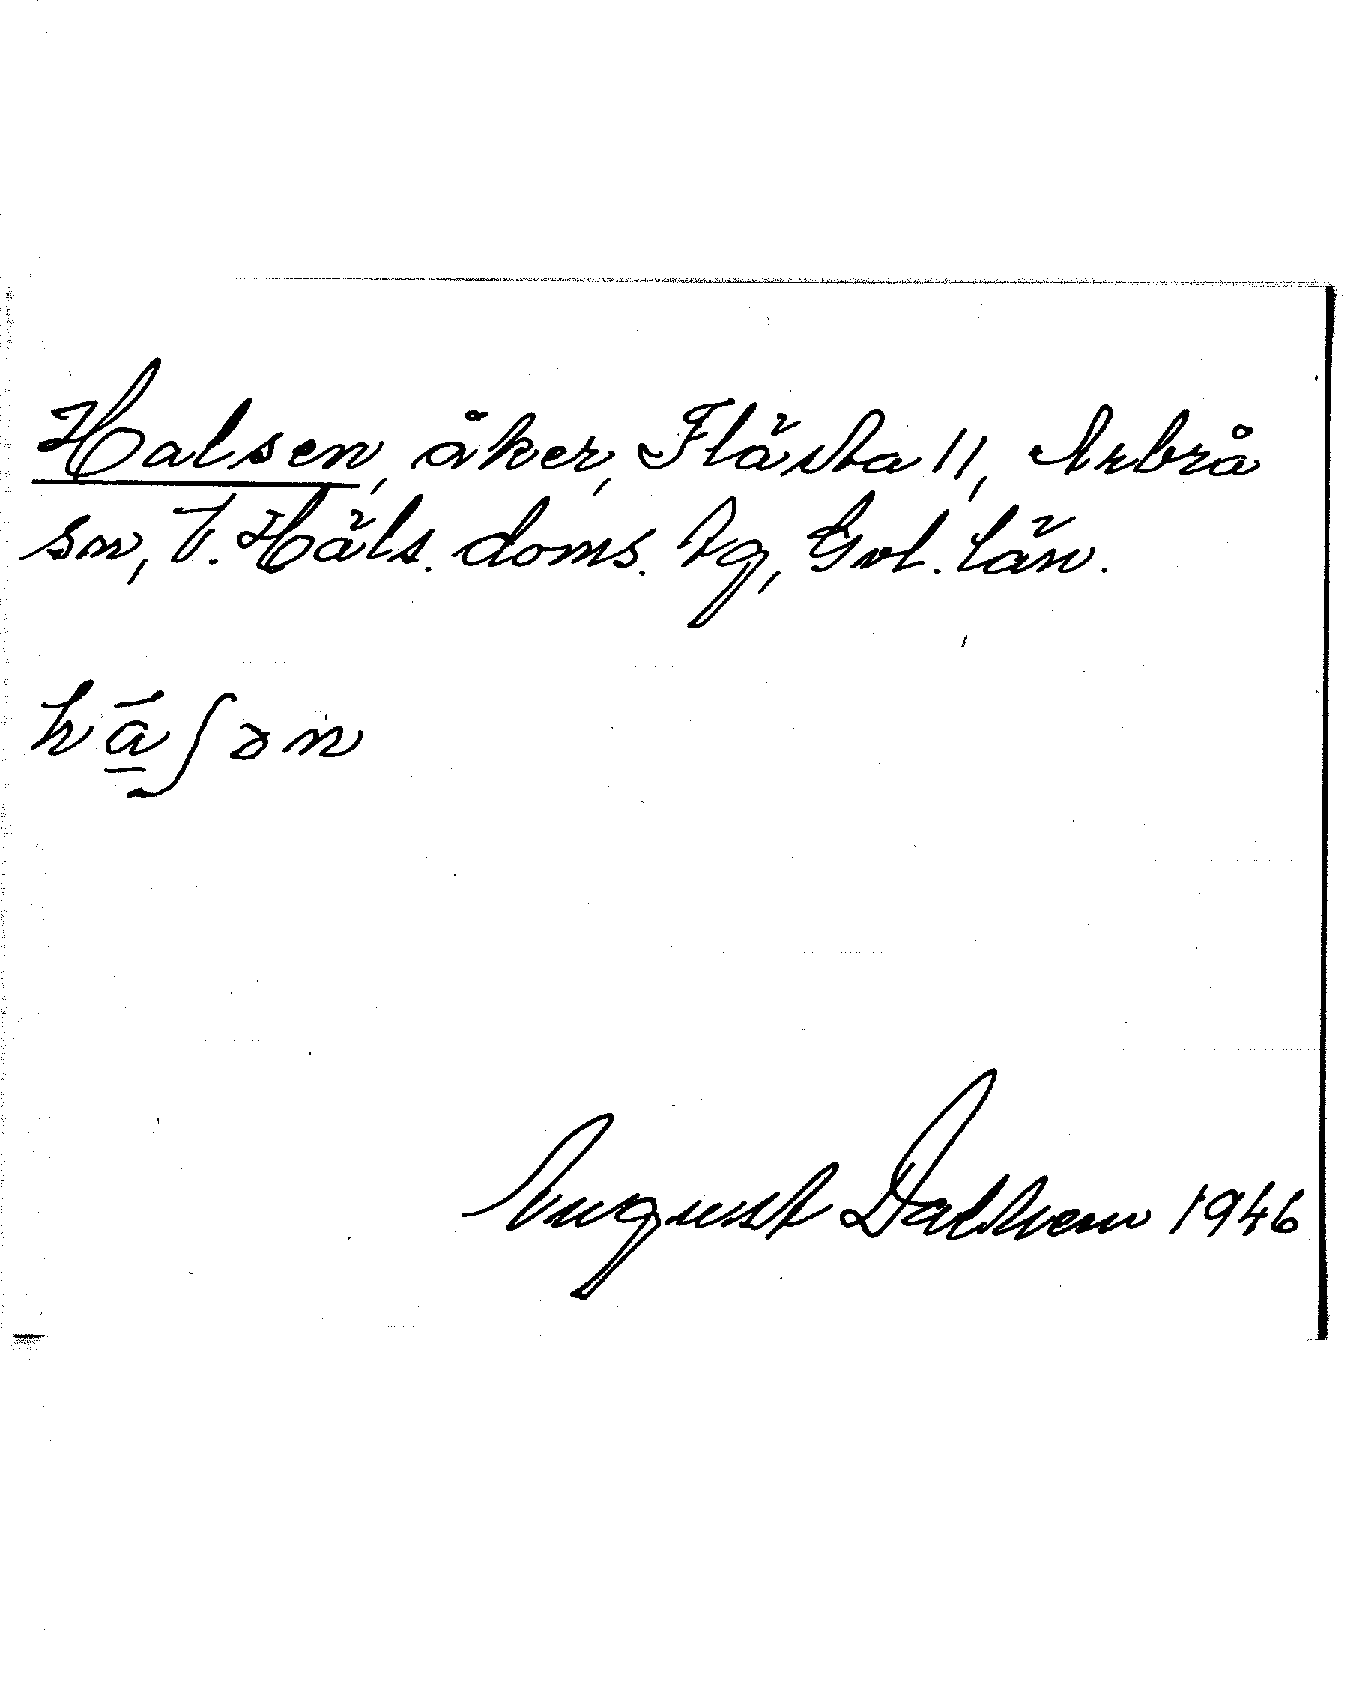 Halsen, åker, Flästa 11, Arbrå
sn, V. Häls. doms. tg, Gvl. län.
hā̱ʃən
August Dalhem 1946